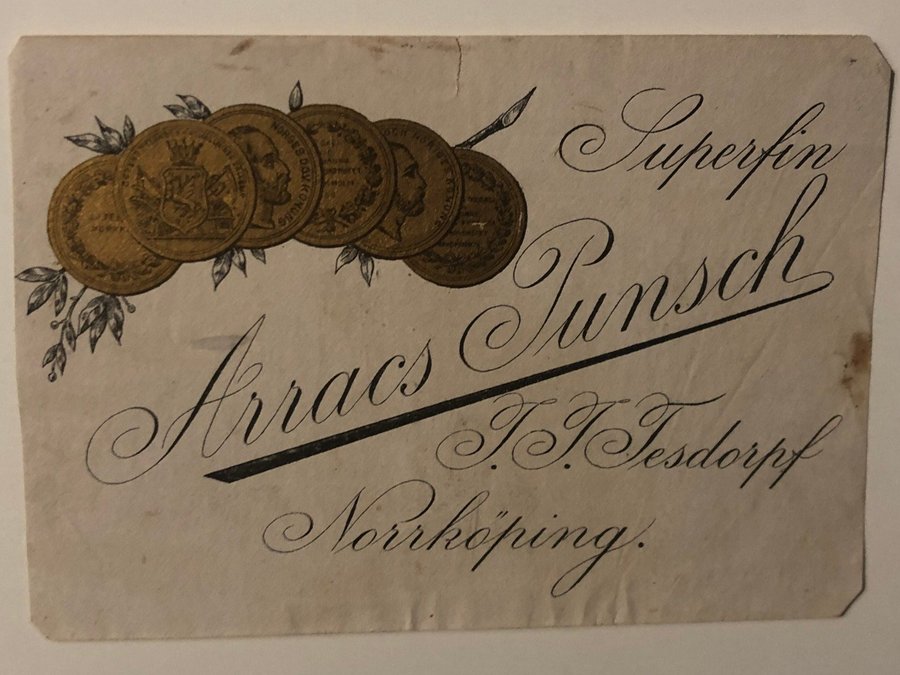 Superfin
Arracs Punsch
J. J. Tesdorpf
Norrköping.